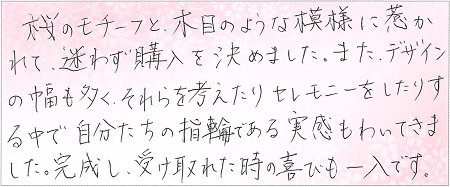 桜のモチーフと、木目のような模様に惹か
れて、迷わず購入を決めました。また、デザイン
の幅も多く、それらを考えたりセレモニーをしたりす
る中で自分たちの指輪である実感もわいてきま
した。完成し、受け取れた時の喜びも一入です。